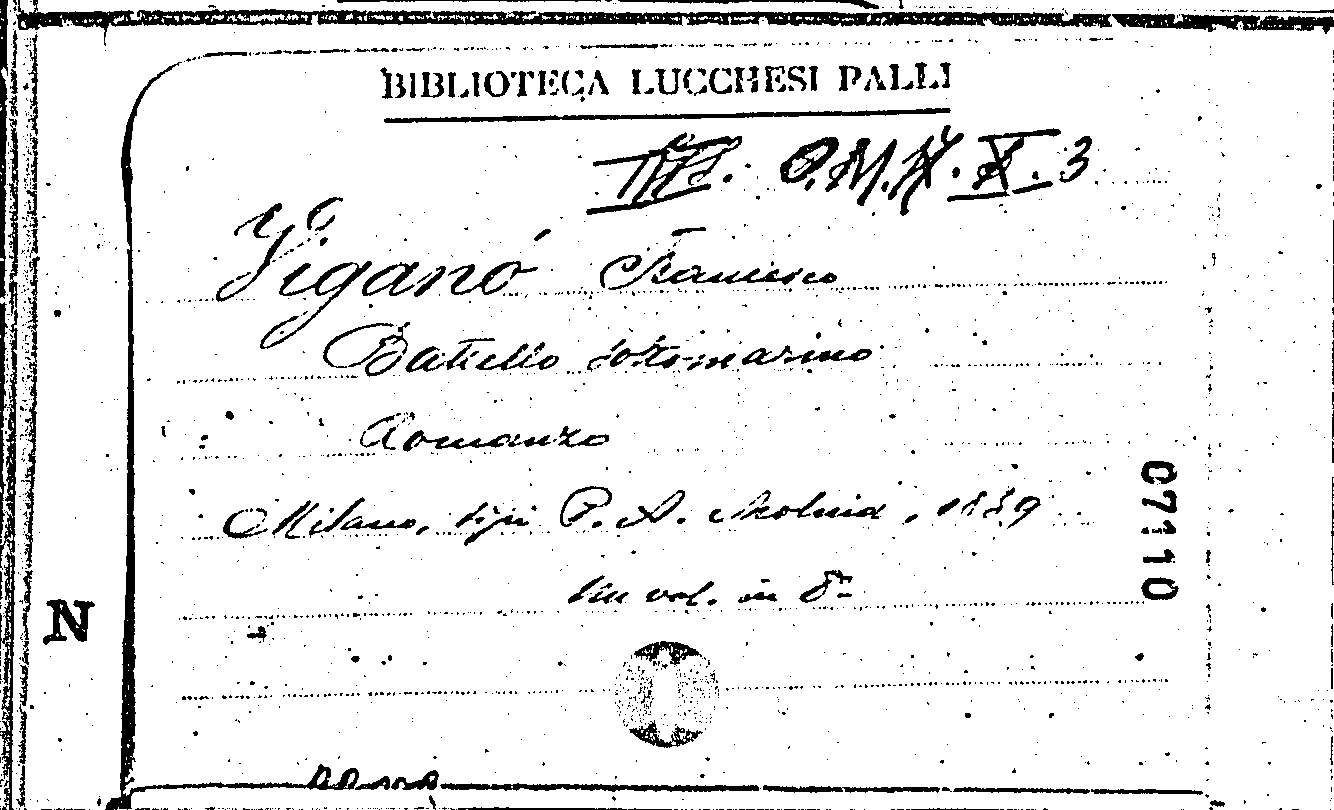 BIBLIOTECA LUCCHESI PALLI
X. 3
Viganó Francesco
Battello sottomarino
Romanzo
Milano, tipi P. A. Molina, 1839
Un vol. in 8º
07110
N